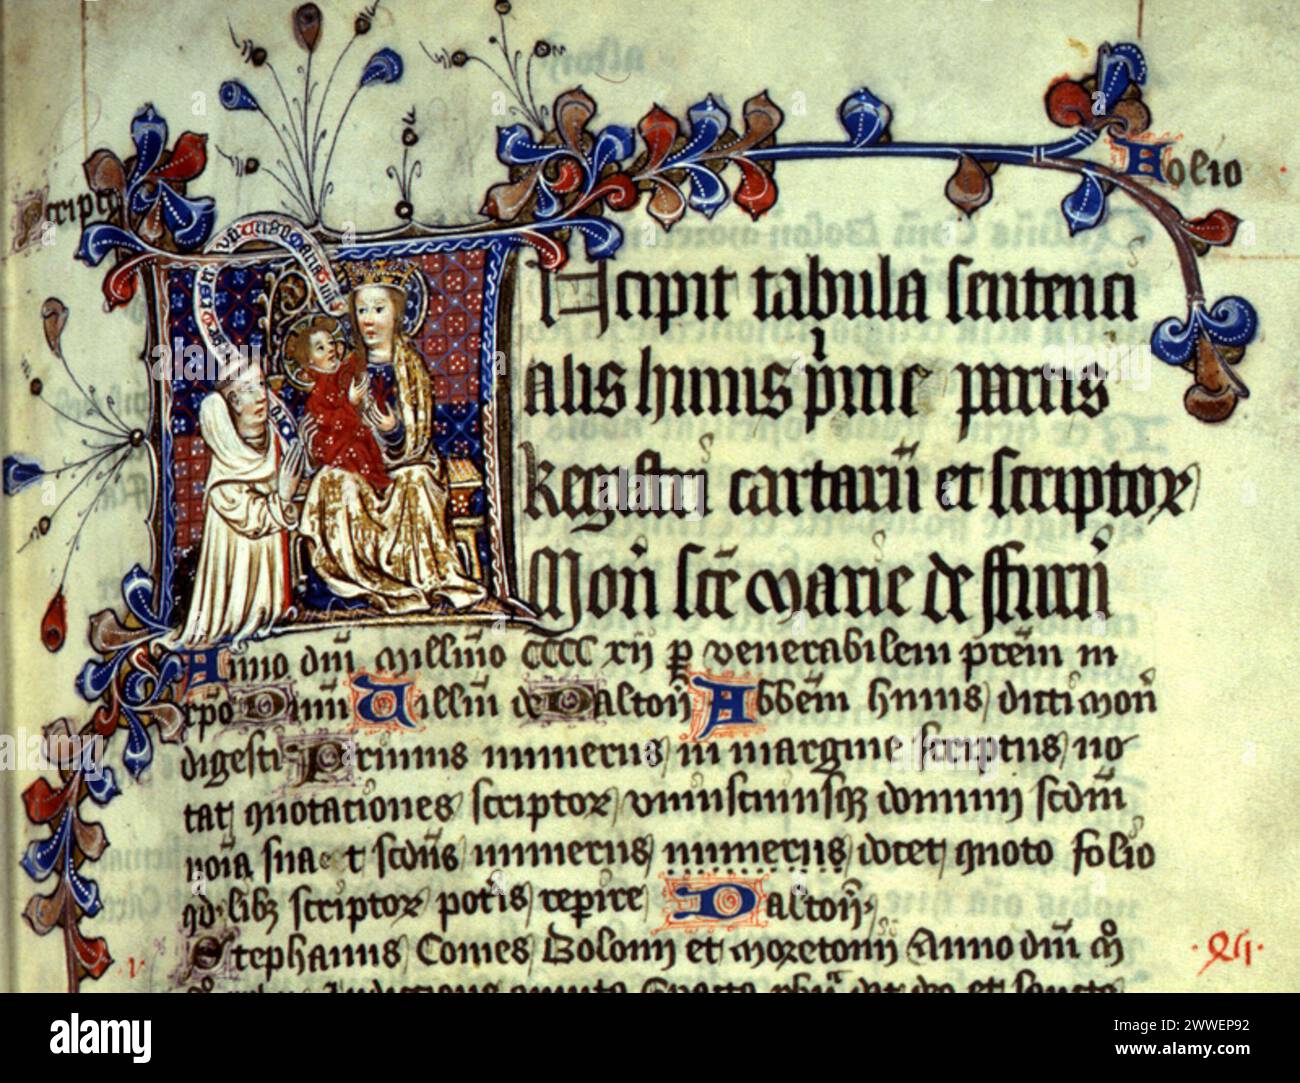 Scripto
Folio
Incipit tabula sentenci
alis huius prime partis
Registri cartarum et scriptor
Mon scte Marie de ffurn
Anno dni Millimo CCCC xij p venerabilem prem in
xpo Dnm Willm de Dalton Abbem huius dicti mon
digesti Primus numerus in margine scriptus no
tat quotationes scriptor uniuscuiusq domini scdm
noia sua et scdus numerus numerus docet quoto folio
qdlibz scriptor potis reperire Dalton
Stephanus Comes Bolon et moreton Anno dni M
.v.
alamy
Image ID: 2WWEP92
www.alamy.com